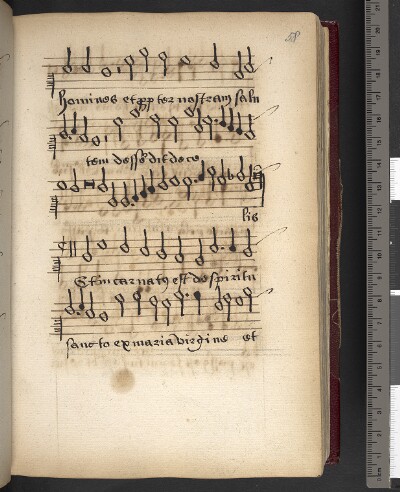 58
homines et propter nostram salu
tem descendit de ce
lis
Et incarnatus est de spiritu
sancto ex maria virgine et